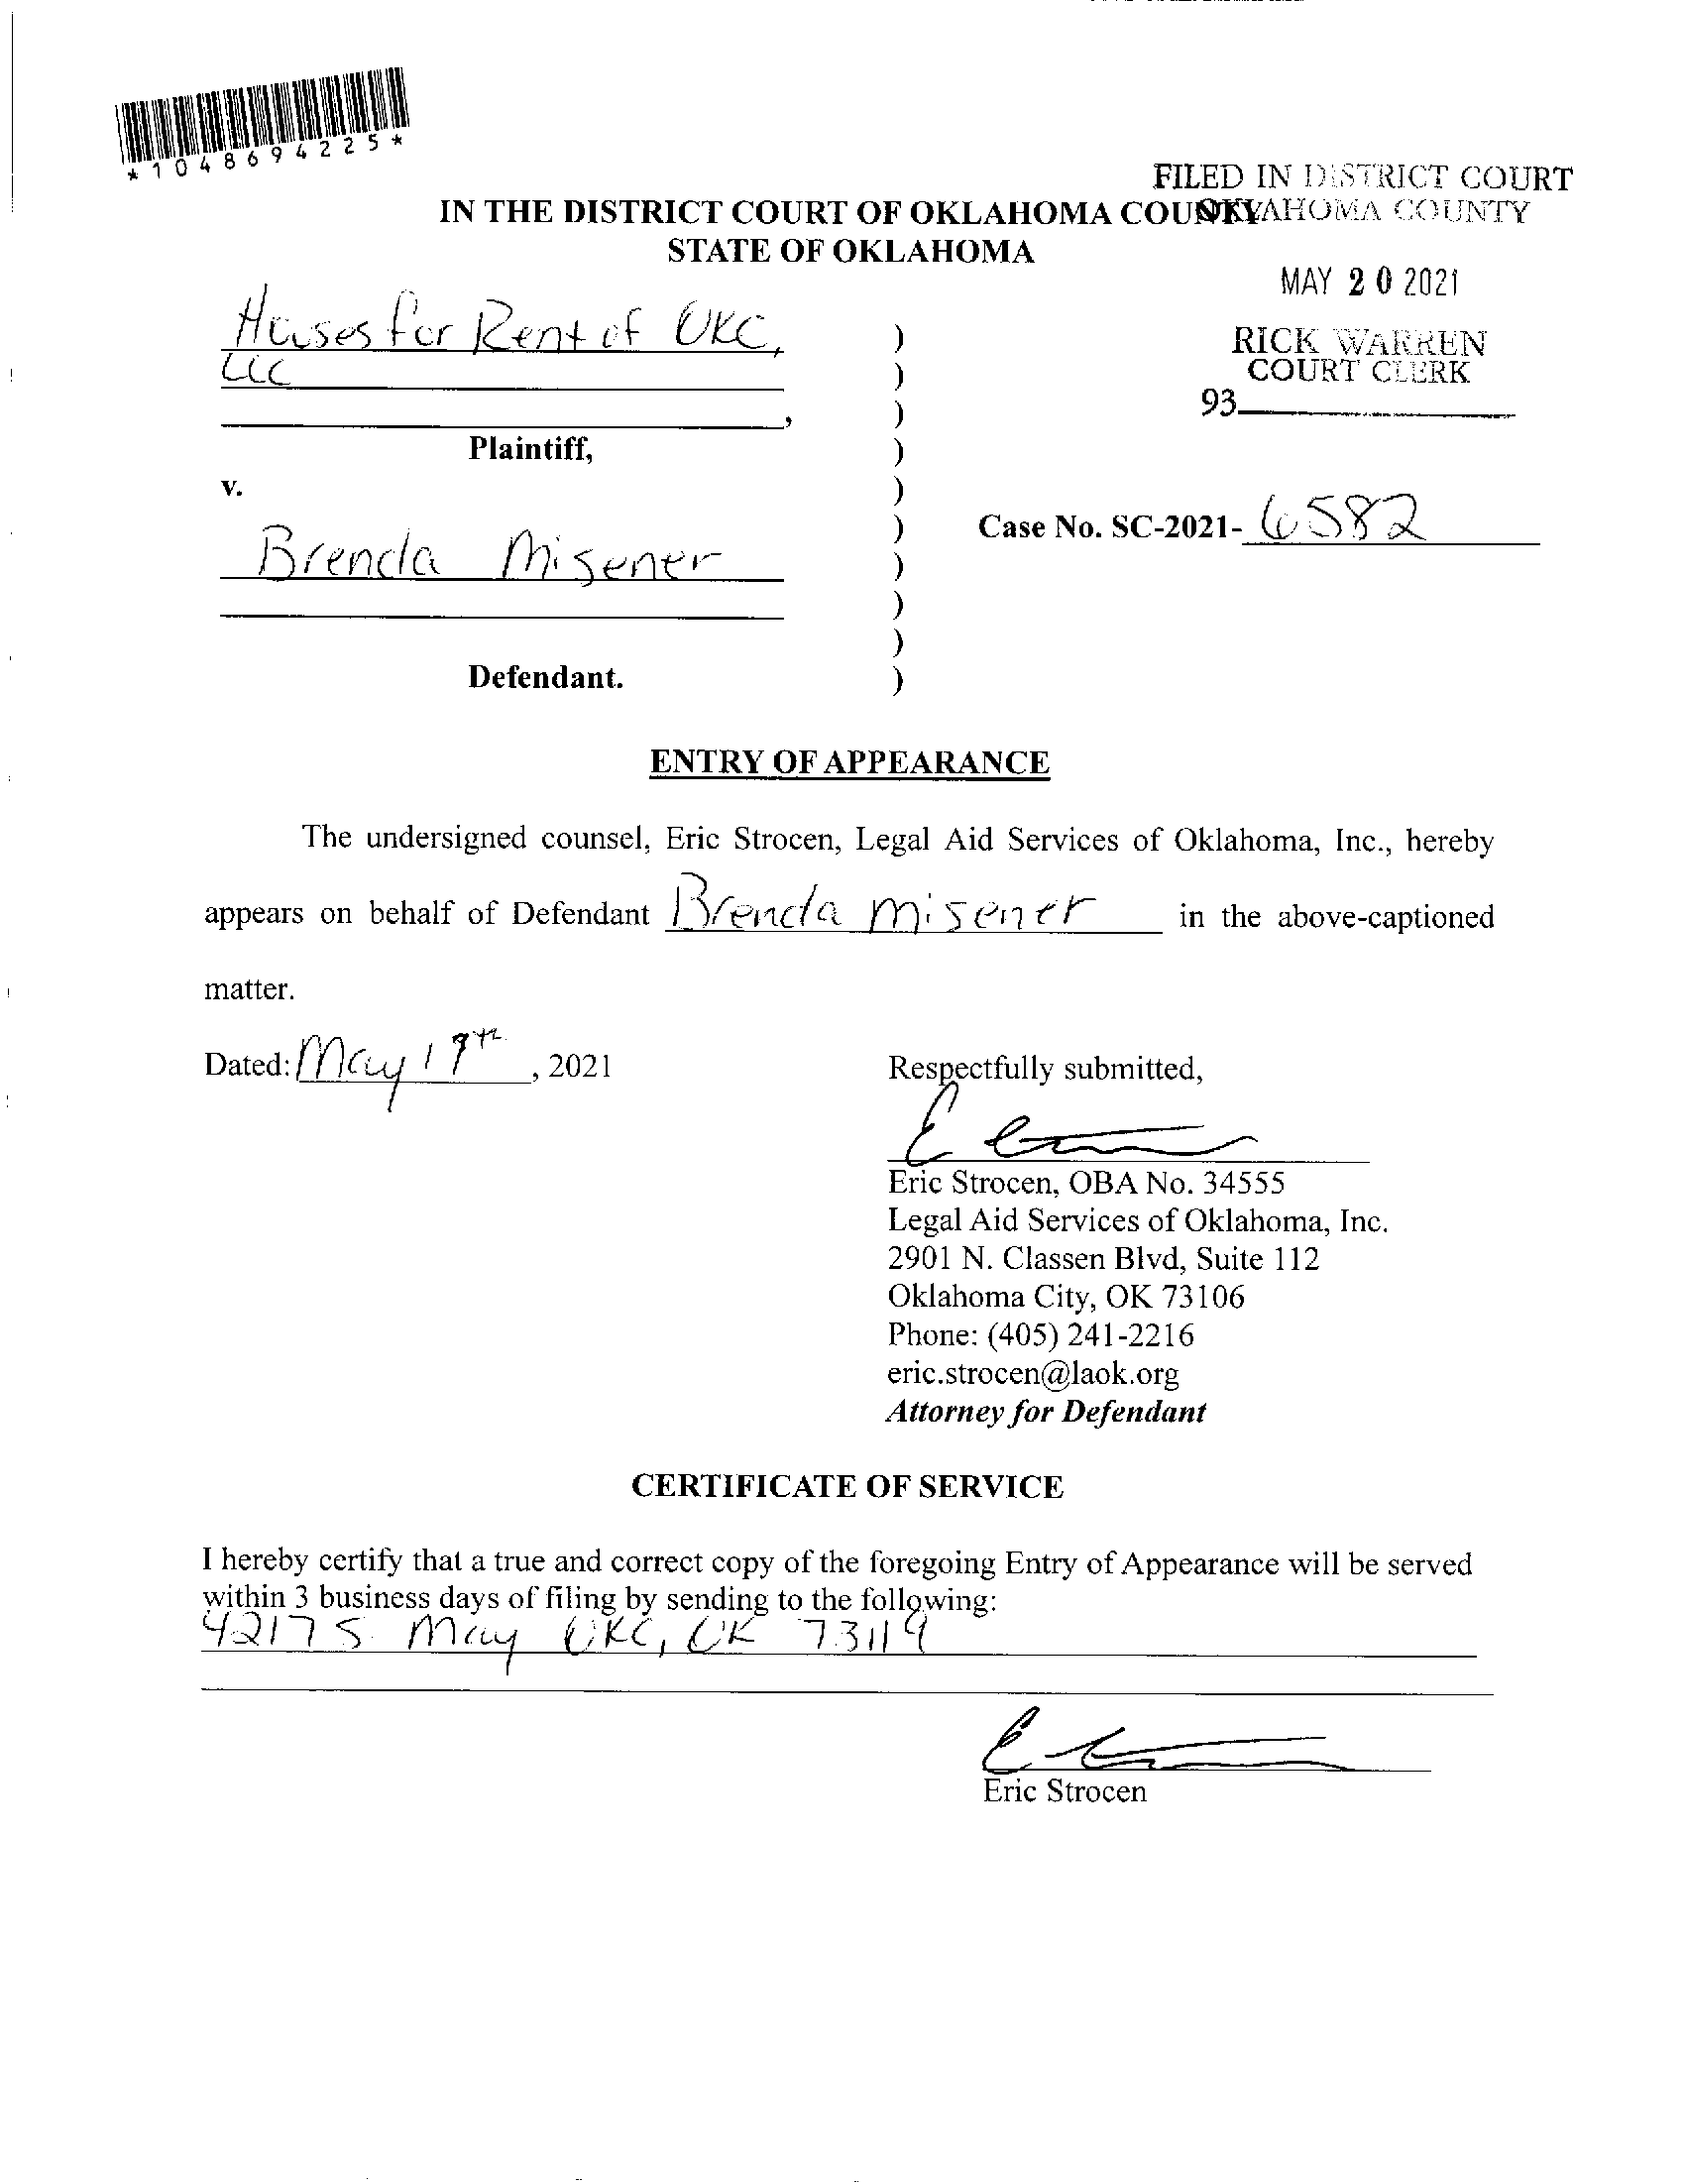 *1048694225*
FILED IN DISTRICT COURT
OKLAHOMA COUNTY
IN THE DISTRICT COURT OF OKLAHOMA COUNTY
STATE OF OKLAHOMA
MAY 20 2021
Houses for Rent of OKC,
LLC
RICK WARREN
COURT CLERK
93
,
Plaintiff,
v.
Case No. SC-2021- 6582
Brenda Misener
Defendant.
ENTRY OF APPEARANCE
The undersigned counsel, Eric Strocen, Legal Aid Services of Oklahoma, Inc., hereby
appears on behalf of Defendant Brenda Misener in the above-captioned
matter.
Dated: May 19th, 2021
Respectfully submitted,
Eric Strocen, OBA No. 34555
Legal Aid Services of Oklahoma, Inc.
2901 N. Classen Blvd, Suite 112
Oklahoma City, OK 73106
Phone: (405) 241-2216
eric.strocen@laok.org
Attorney for Defendant
CERTIFICATE OF SERVICE
I hereby certify that a true and correct copy of the foregoing Entry of Appearance will be served
within 3 business days of filing by sending to the following:
4217 S. May OKC, OK 73119
Eric Strocen